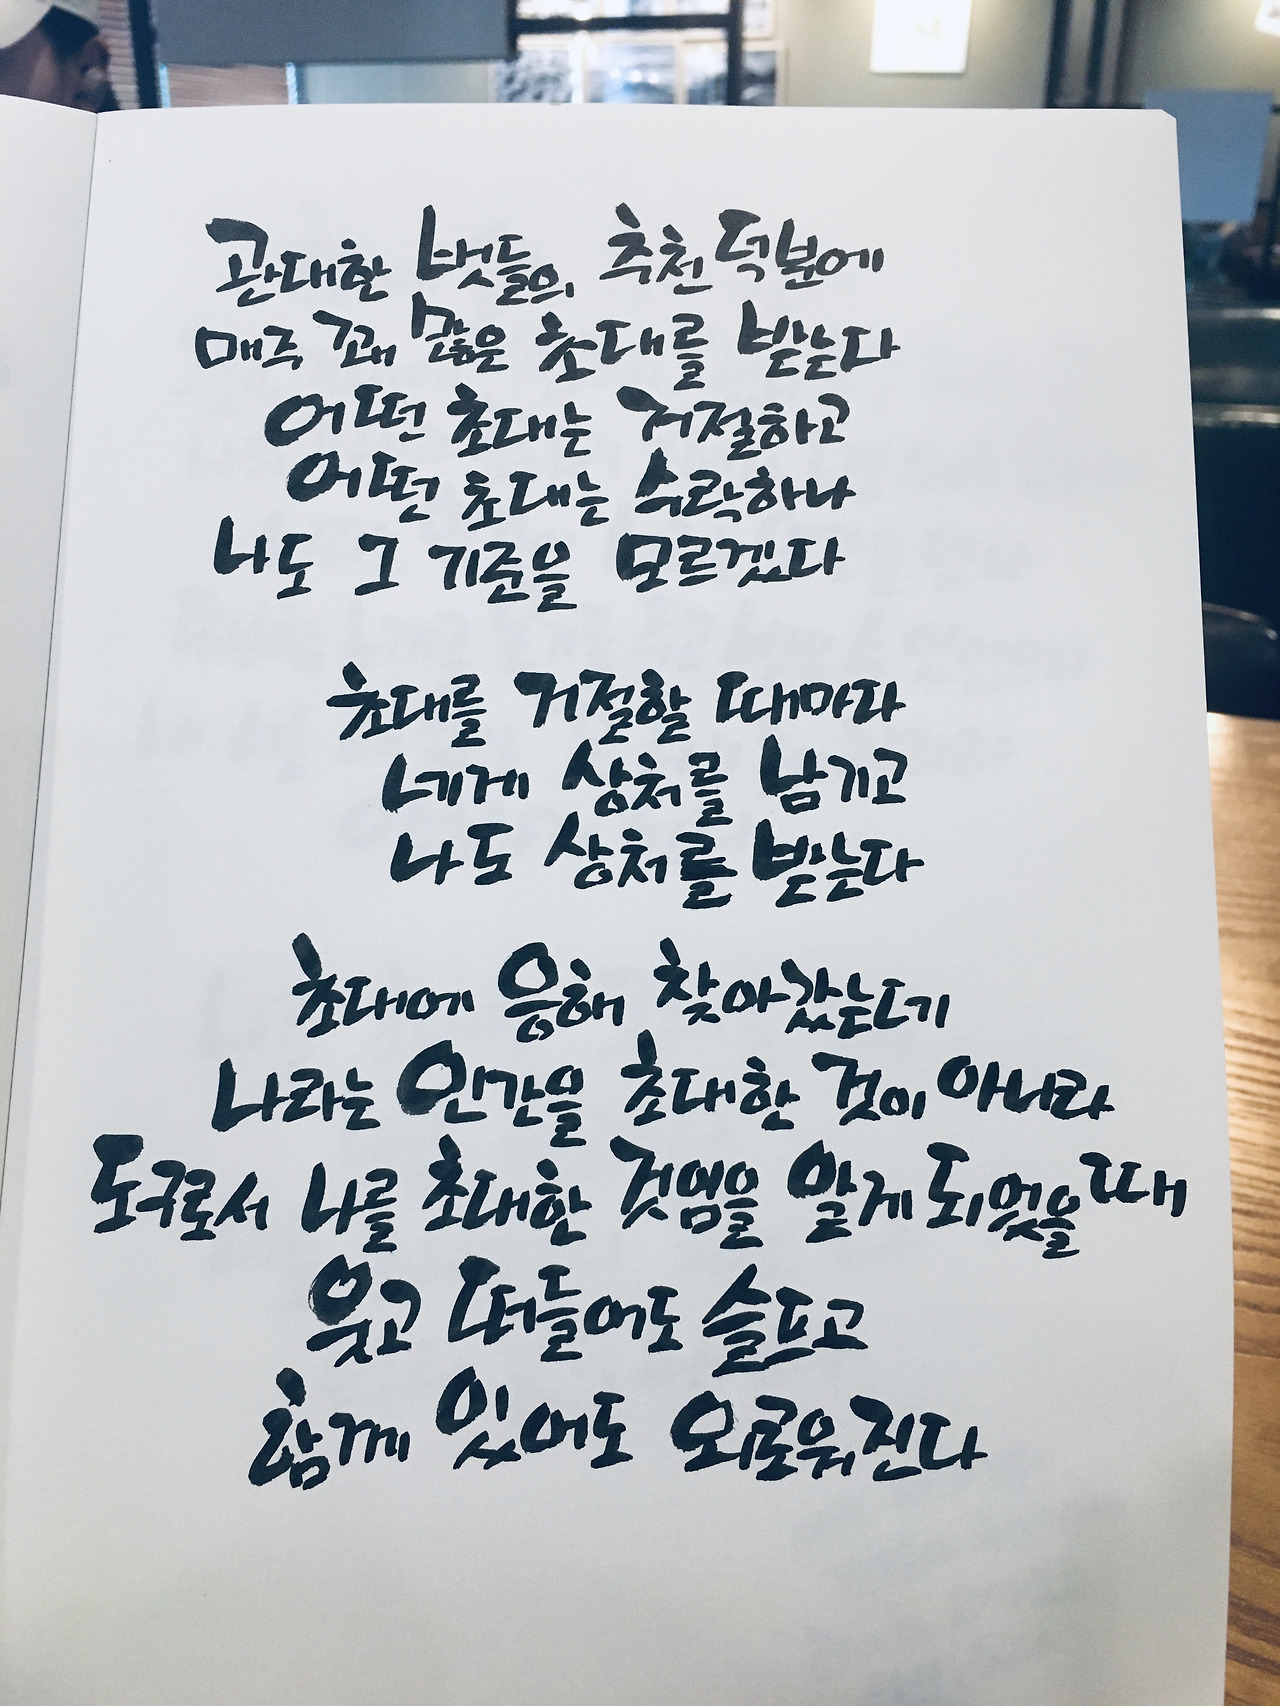 관대한 벗들의 추천 덕분에
매주 꽤 많은 초대를 받는다
어떤 초대는 거절하고
어떤 초대는 수락하나
나도 그 기준을 모르겠다
초대를 거절할 때마다
네게 상처를 남기고
나도 상처를 받는다
초대에 응해 찾아갔는데
나라는 인간을 초대한 것이 아니라
도구로서 나를 초대한 것임을 알게 되었을 때
웃고 떠들어도 슬프고
함께 있어도 외로워진다